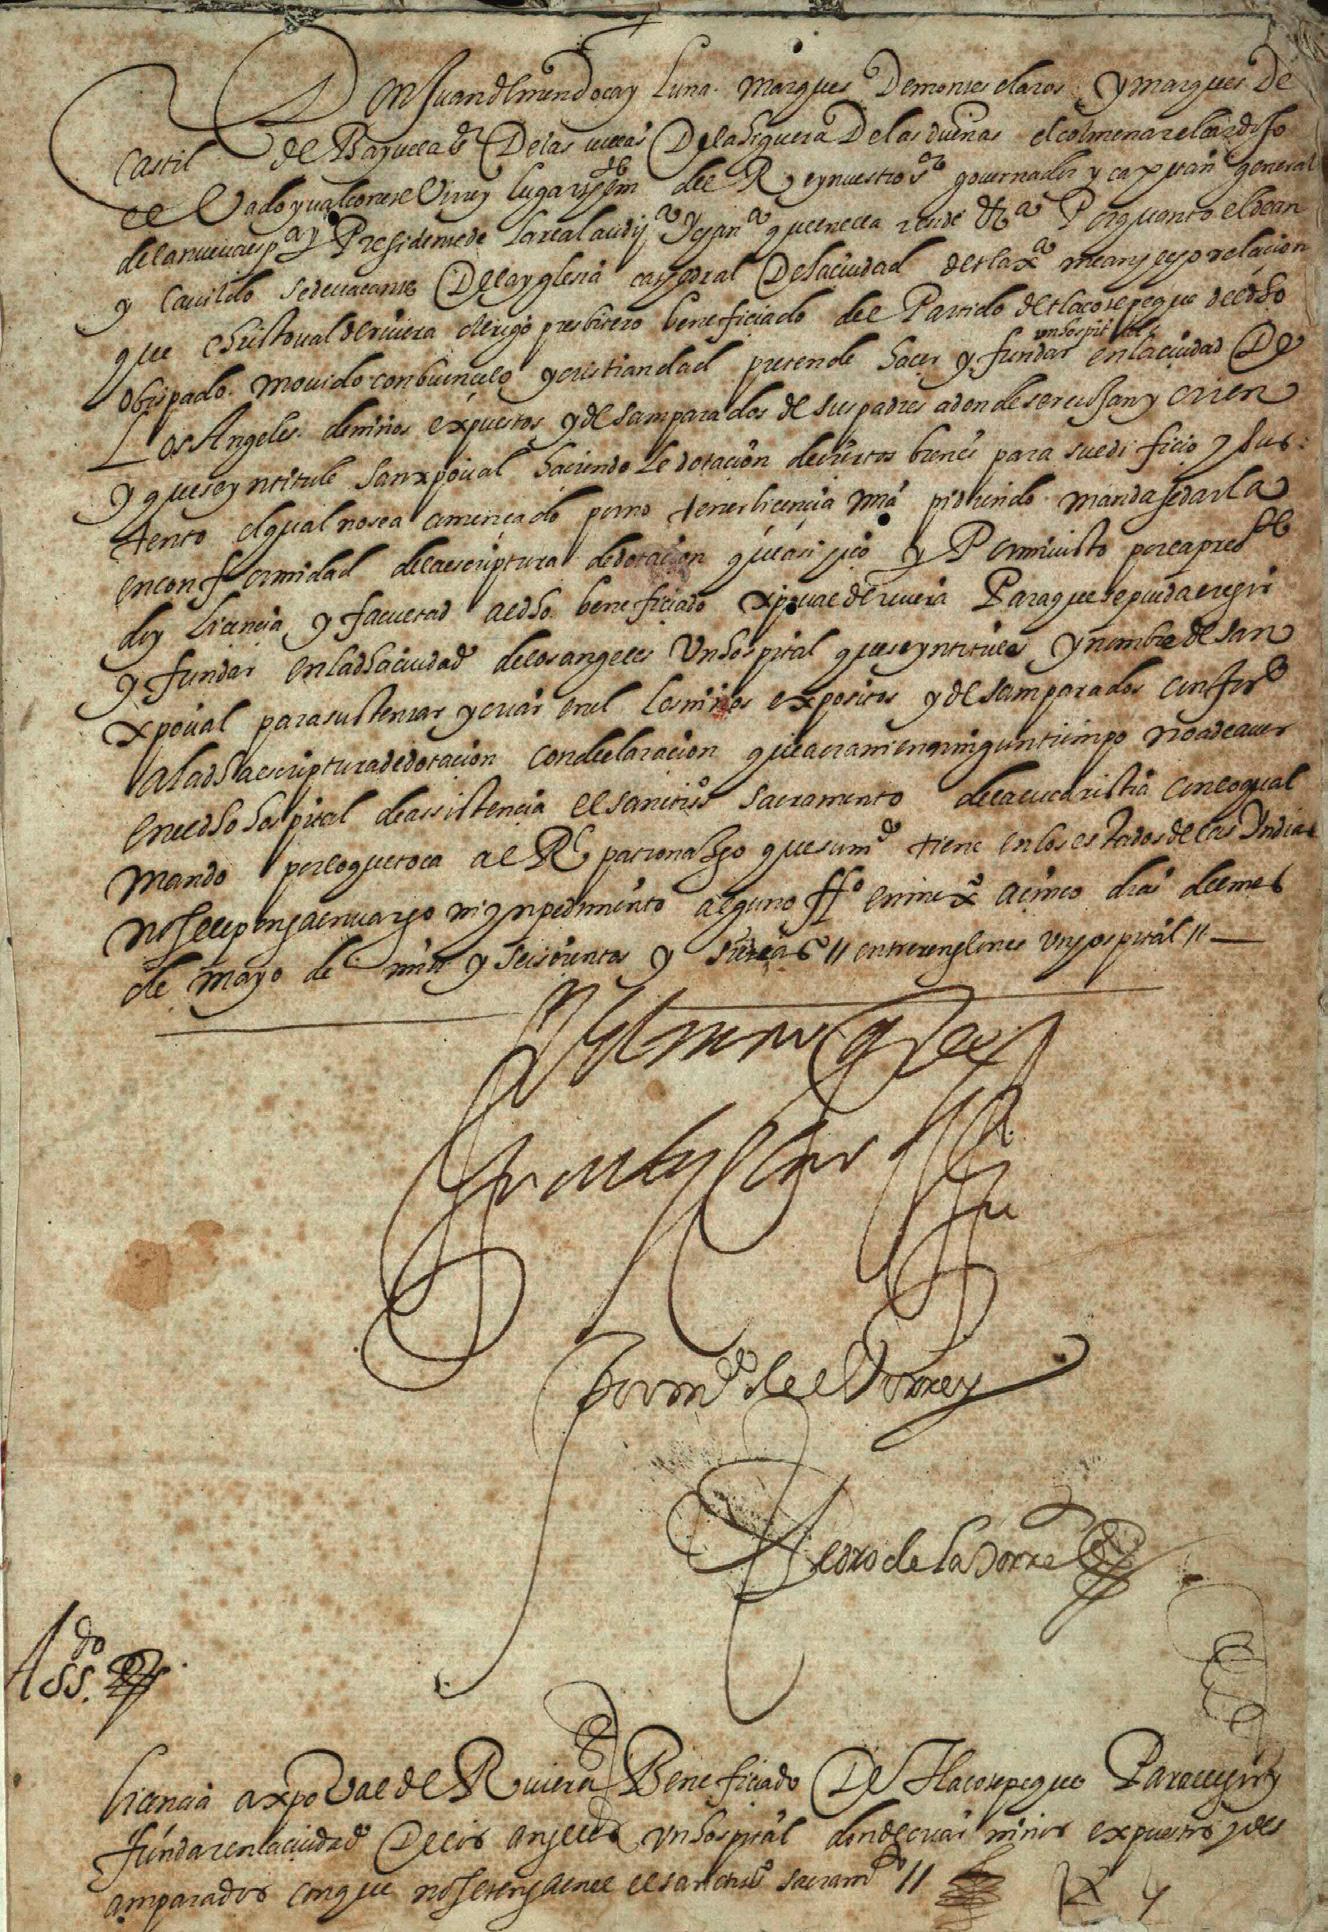 Don Juan de mendoca y Luna. marques Demontesclaros y marques De
Castil de Bayuela sr. Delas villas Dela higuera Delas duenas el colmenar el cardoso
el Vado y valconete Virrey lugar thiniente del Rey nuestro sr. governador y capitan general
dela nueva espa y Presidente de la real audiª y chanª que en ella reside &ª Por quanto el dean
y Cavildo sede vacante Dela yglesia cathedral Dela ciudad de tlaxª me an hecho relacion
que christoval de riviera clerigo presbitero beneficiado del Partido de tlacotepeque de el dho
obispado. movido con buen celo y cristiandad pretende hacer y fundar un hospital en la ciudad De
Los Angeles. de niños expuestos y de samparados de sus padres adonde se recojan y crien
y que se yntitule san xpoval haciendole dotacion de ciertos bienes para su edificio y sus
tento el qual no sea comencado por no tener licencia mia pidiendo mandase darla
en conformidad dela escriptura de dotacion que asi hico y Por mi visto por la presste
doy licencia y facultad al dho beneficiado xpoval de riviera Para que se pueda erigir
y fundar en la dha ciudad delos angeles Un hospital que se yntitule y nombre de san
xpoval para sustentar y criar en el los niños expositos y de samparados conforme
a la dha escriptura de dotacion con declaracion que aora ni en ningun tiempo no a de aver
en el dho hospital de assistencia el sanctissº sacramento dela eucaristia con lo qual
mando por lo que toca al Rl patronazgo que su mgd tiene en los estados de las Yndias
no se le ponga envarago ni ynpedimento alguno ffº en mexº a cinco dias del mes
de mayo de mill y seiscientos y siete aºs // entre renglones un hospital //
El marques
de montesclaros
Por mdº del Virrey
Pedro de la Torre
Assdo
licencia a xpoval de Riviera Beneficiado De tlacotepeque Para erigir y
fundar en la ciudad Delos angeles un hospital donde criar niños expuestos y des
amparados con que no se tenga en el el sanctissº sacramº //